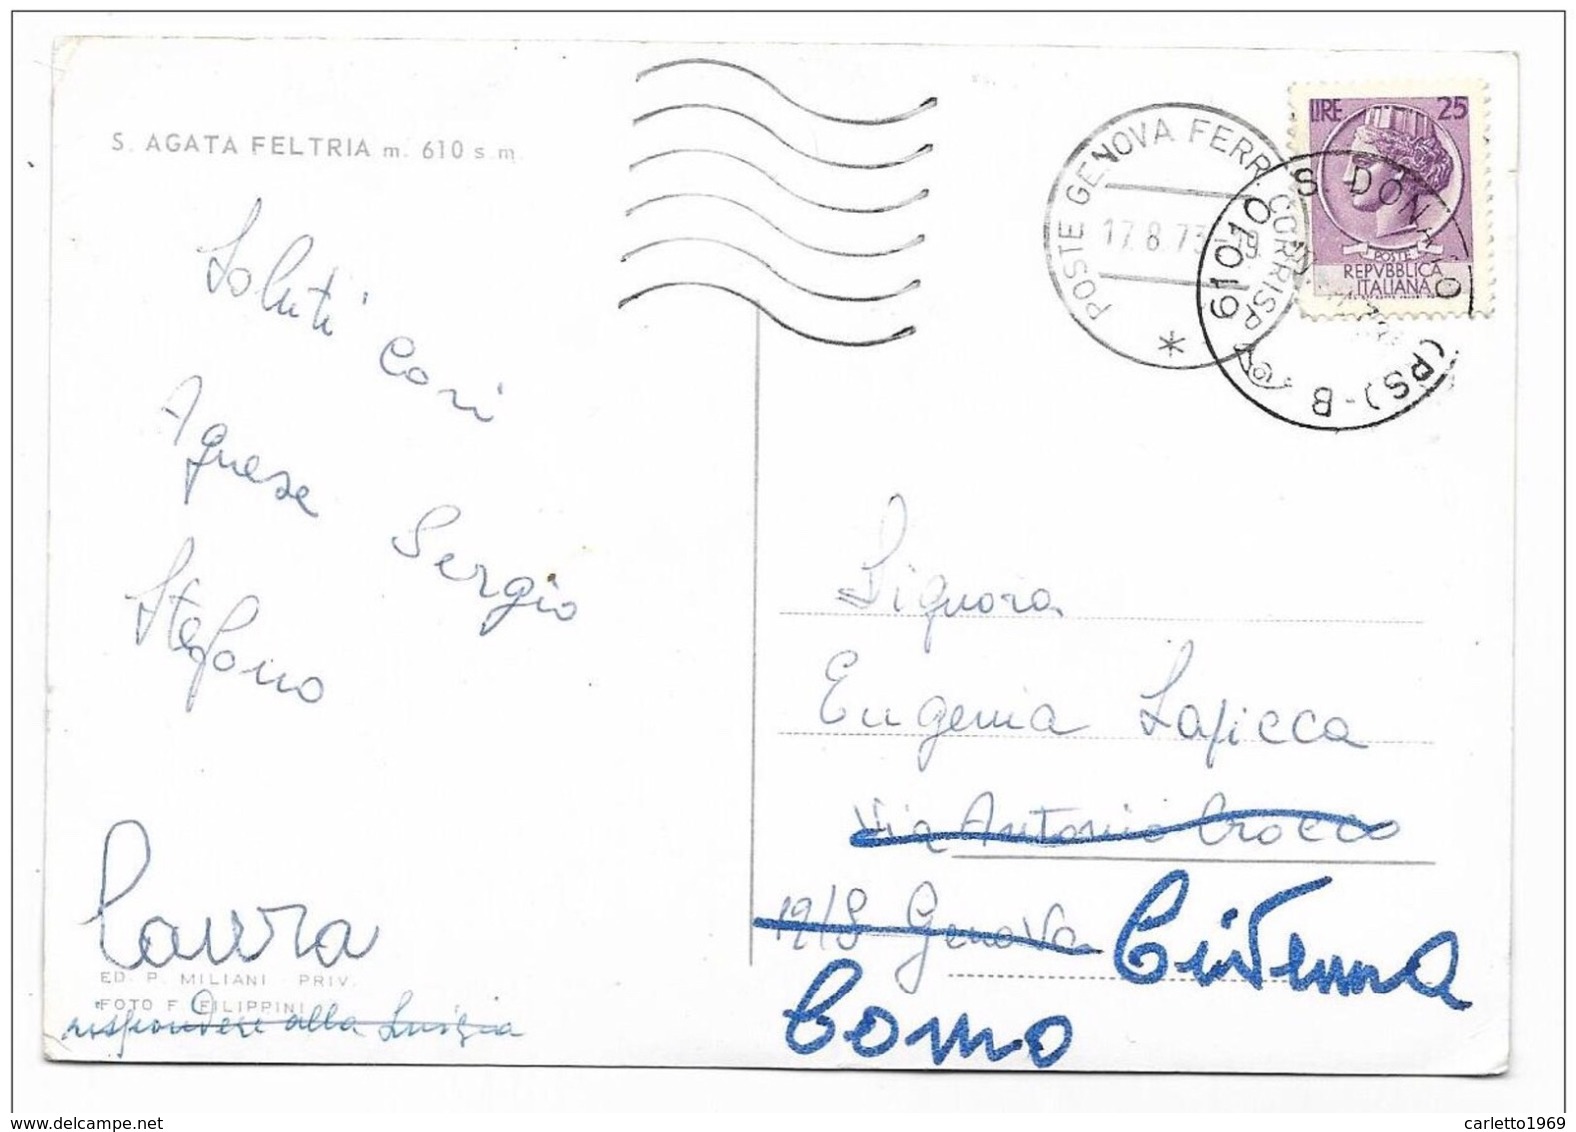 S. AGATA FELTRIA m. 610 s m
Saluti Cari
Agnese Sergio
Stefano
Laura
ED. P. MILIANI - PRIV.
FOTO F. FILIPPINI
rispondere alla Luigia
POSTE GENOVA FERR. CORRISP.
17.8.73-19
61010 S. DONATO (PS) - B
LIRE 25
POSTE
REPVBBLICA
ITALIANA
Signora
Eugenia Lapicca
Via Antonio Crocco
19/8 Genova
Civenna
Como
carletto1969